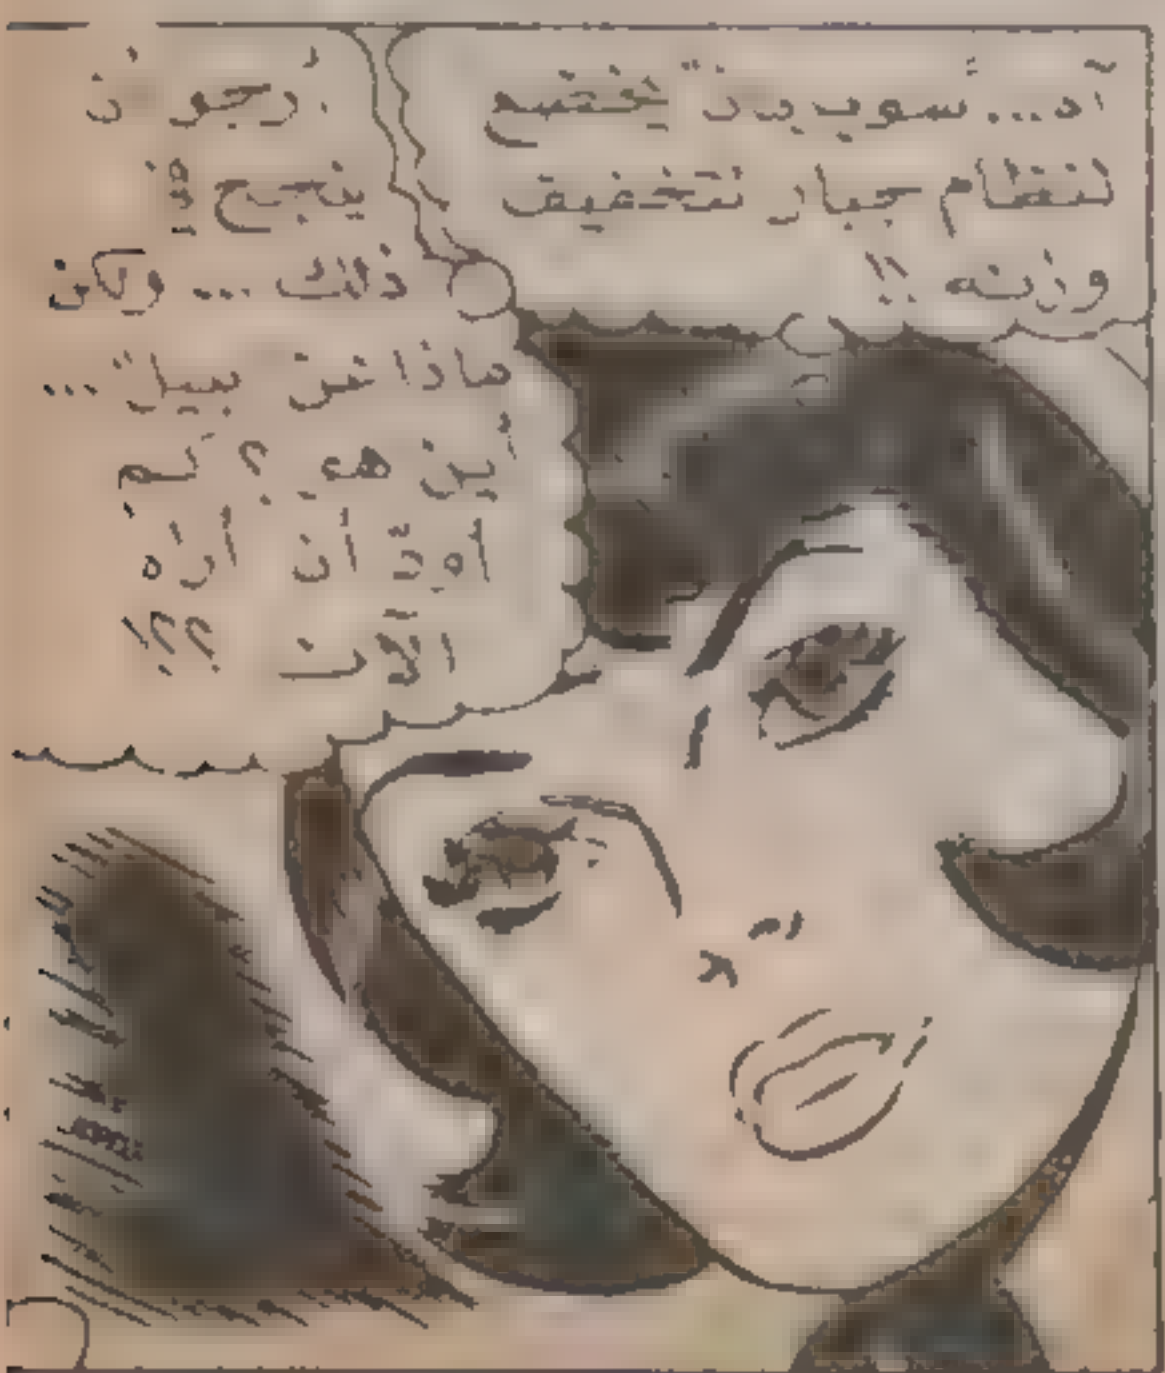 آه... "سوبرمان" يخضع
لنظام جبار لتخفيف
وزنه !!
أرجو أن
ينجح في
ذلك ... ولكن
ماذا عن "نبيل" ...
أين هو ؟ كم
أودّ أن أراه
الآن ؟؟!